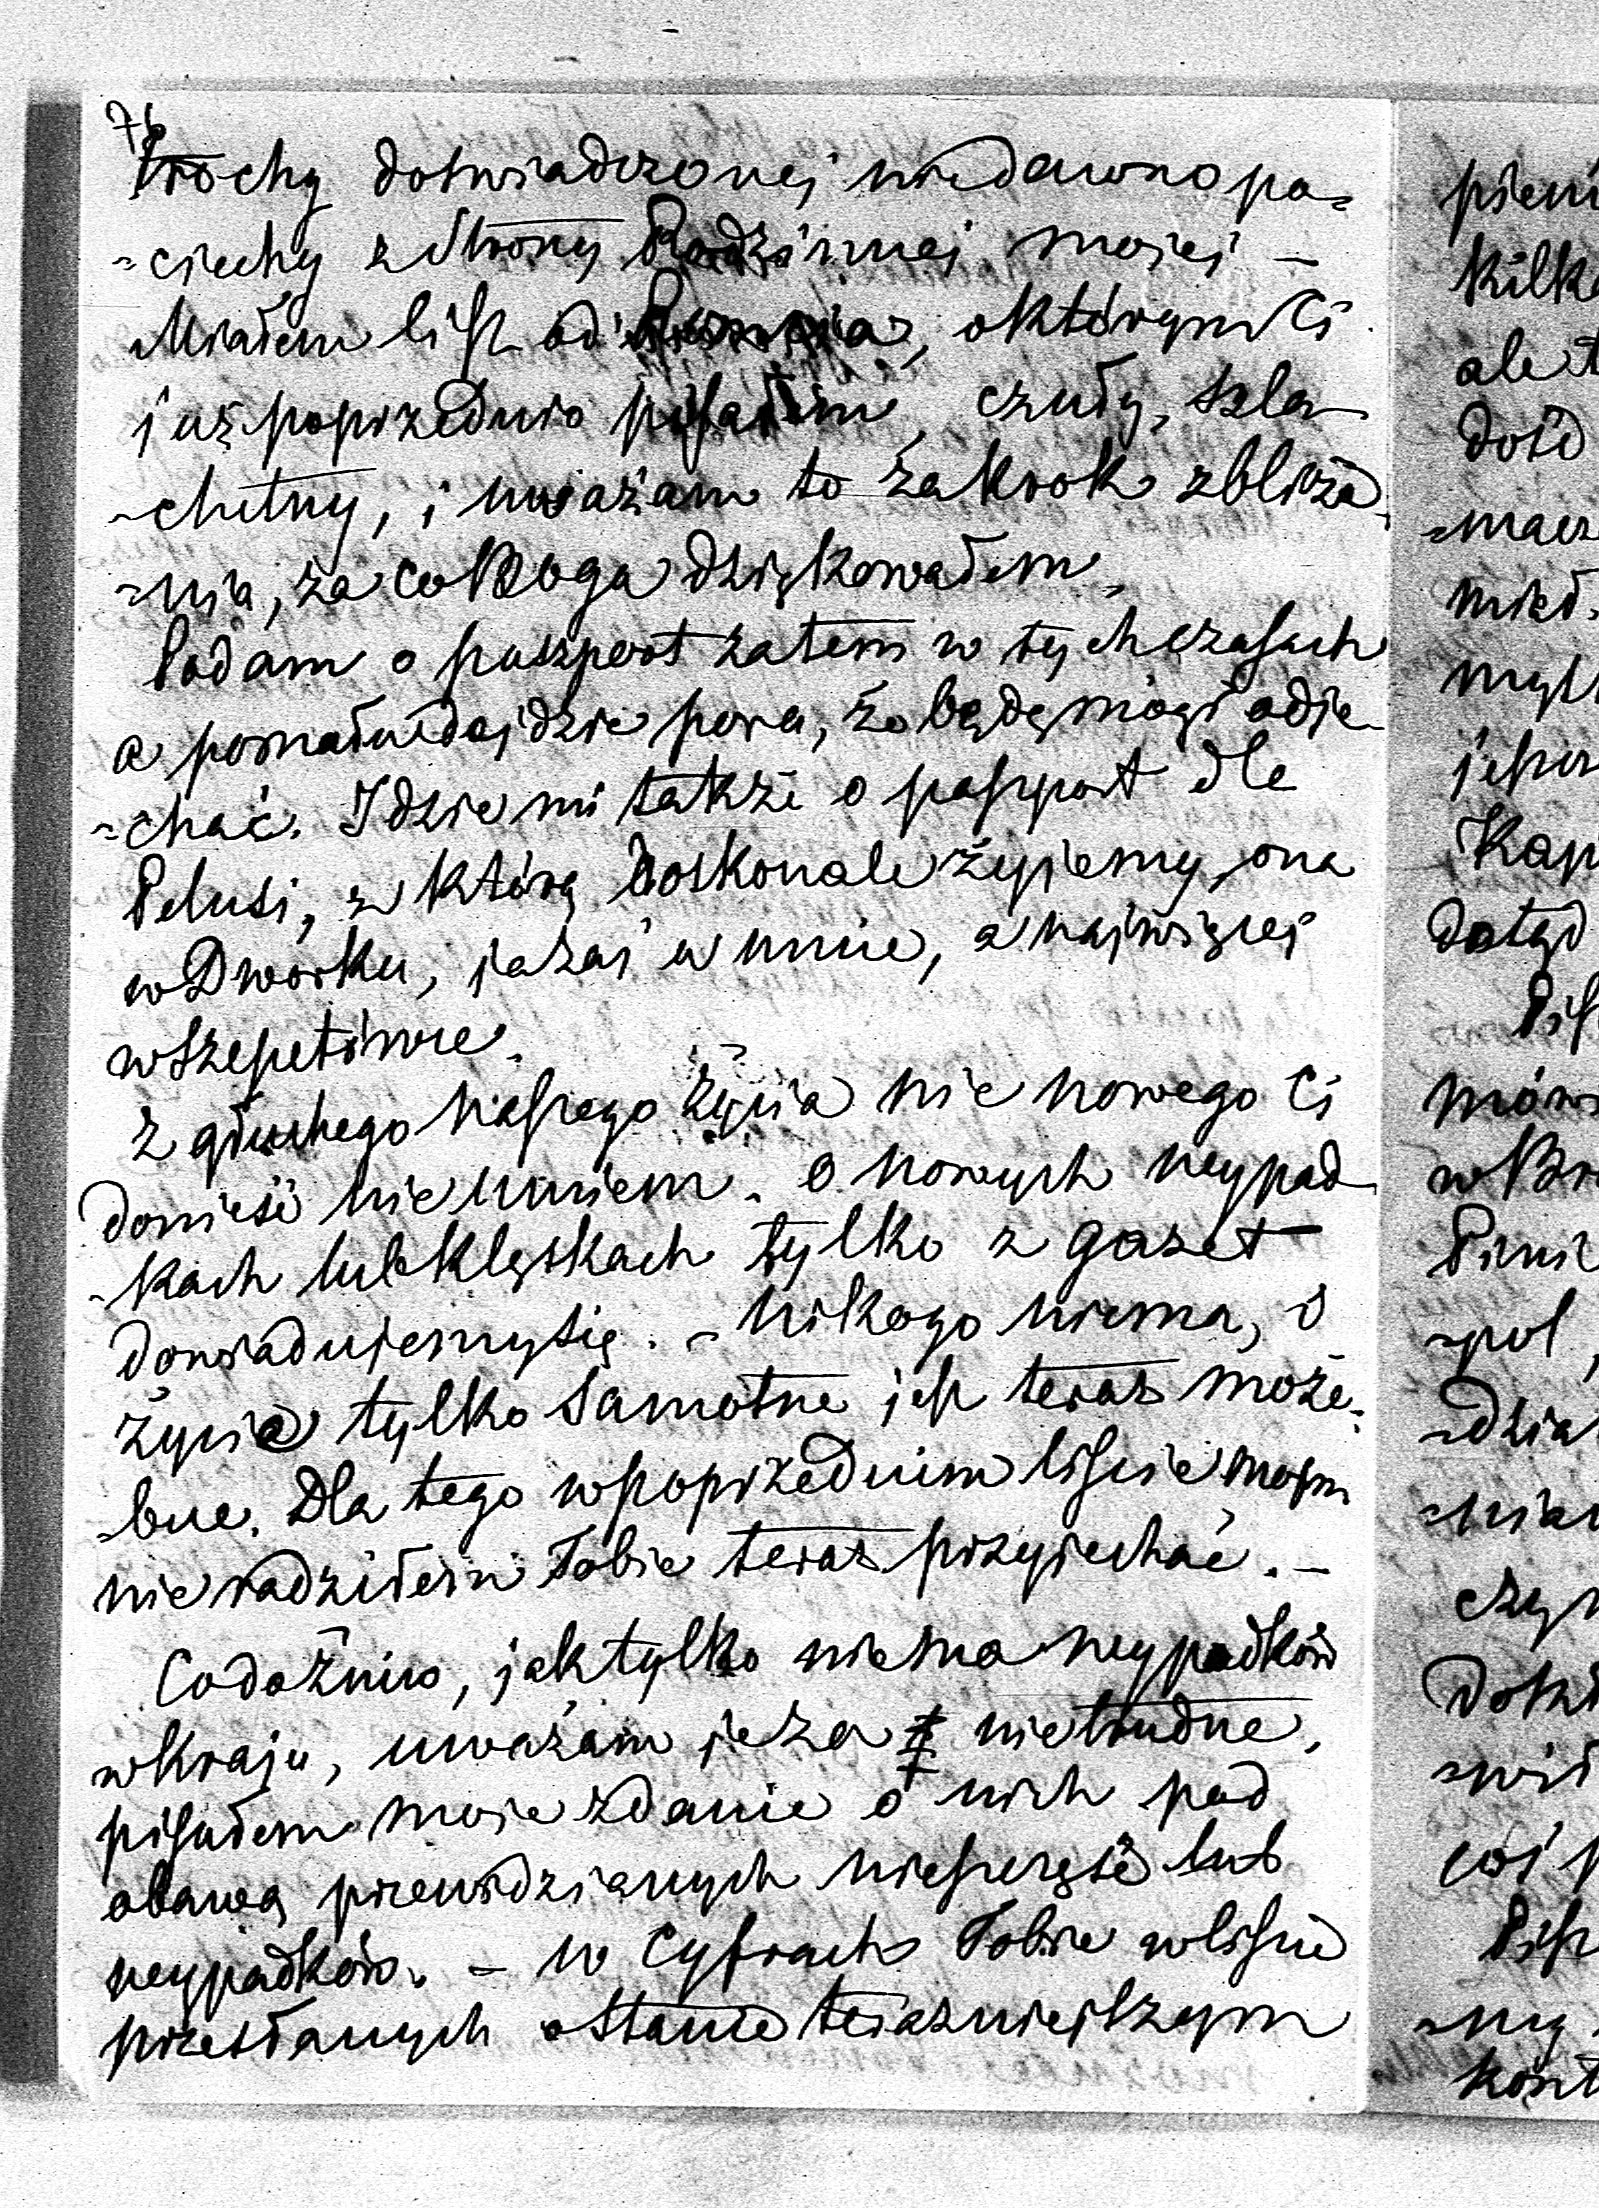 76
Trochy doświadczonej niedawno po=
=ciechy z strony Rodzinnej mojej —
Miałem list od, o którym Ci
już poprzednio pisałem, czuły, szla=
=chetny, i uważam to za krok zbliża=
=nia, za co Boga dziękowałem.
Podam o paszport zatem w tych czasach
a pomału dojdzie pora, że będę mógł odje=
=chać. Idzie mi także o paszport dle
Pelusi, z którą doskonale żyjemy, ona
w Dworku, ja zaś u mnie, a najwięcej
w Szepetówce.
Z głuchego naszego życia nic nowego Ci
donieść nie umiem. O nowych wypad=
=kach lub klęskach tylko z gazet
dowiadujemy się. — Nikogo niema, i
życie tylko samotne jest teraz może=
=bne. Dla tego w poprzednim liście moim
nie radziłem Tobie teraz przyjechać. —
Co do Żniw, jak tylko niema wypadków
w kraju, uważam je za nietrudne,
pisałem moje zdanie o nich pod
obawą przewidzianych nieszczęść lub
wypadków. — W Cyfrach Tobie w liście
przesłanych o stanie teraźniejszym
pieni
kilka
ale t
dotąd
w Br
czyn